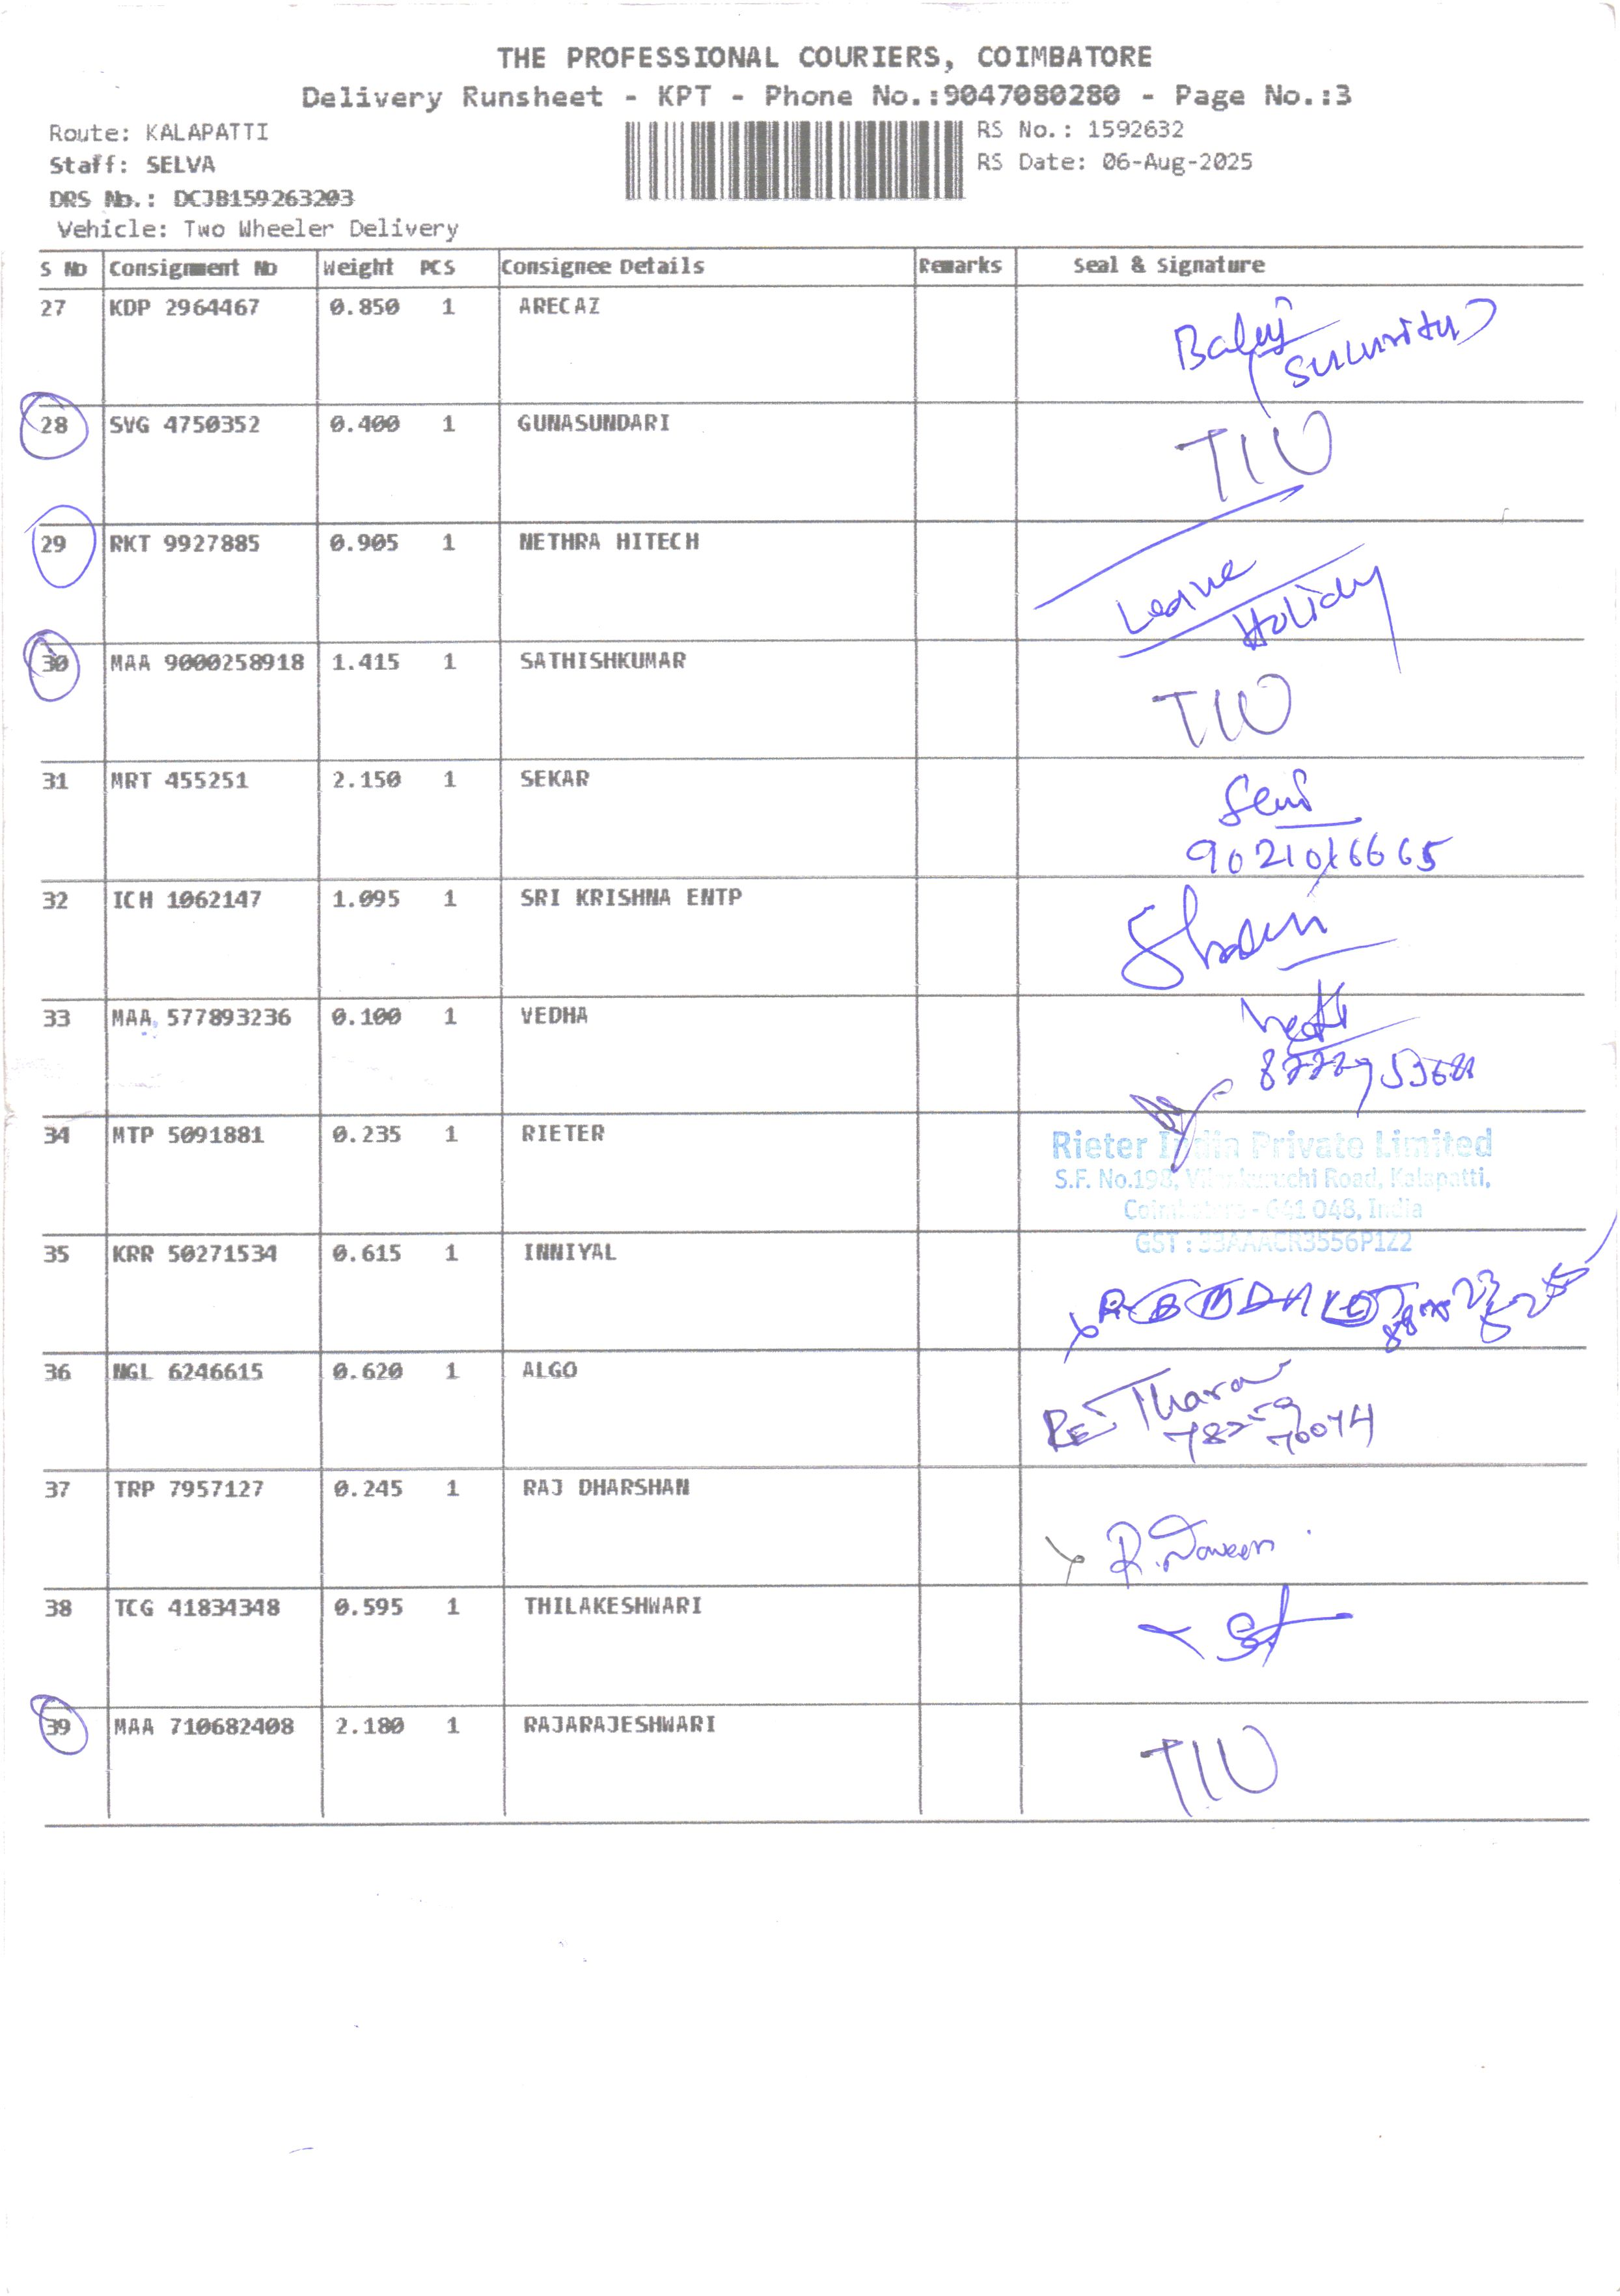 THE PROFESSIONAL COURIERS, COIMBATORE
Delivery Runsheet - KPT - Phone No.:9047080280 - Page No.:3
Route: KALAPATTI
RS No.: 1592632
Staff: SELVA
RS Date: 06-Aug-2025
DRS No.: DCJB159263203
Vehicle: Two Wheeler Delivery
S No Consignment No Weight PCS Consignee Details Remarks Seal & Signature
27 KDP 2964467 0.850 1 ARECAZ
28 SVG 4750352 0.400 1 GUNASUNDARI
TIU
29 RKT 9927885 0.905 1 NETHRA HITECH
Leave
Holiday
30 MAA 9000258918 1.415 1 SATHISHKUMAR
TIU
31 MRT 455251 2.150 1 SEKAR
32 ICH 1062147 1.095 1 SRI KRISHNA ENTP
33 MAA 577893236 0.100 1 VEDHA
34 MTP 5091881 0.235 1 RIETER
Rieter India Private Limited
S.F. No.198, Road, Kalapatti,
Coimbatore - 641 048, India
GST : 33AAACR3556P1Z2
35 KRR 50271534 0.615 1 INNIYAL
36 NGL 6246615 0.620 1 ALGO
37 TRP 7957127 0.245 1 RAJ DHARSHAN
R. Naveen
38 TCG 41834348 0.595 1 THILAKESHWARI
39 MAA 710682408 2.180 1 RAJARAJESHWARI
TIU